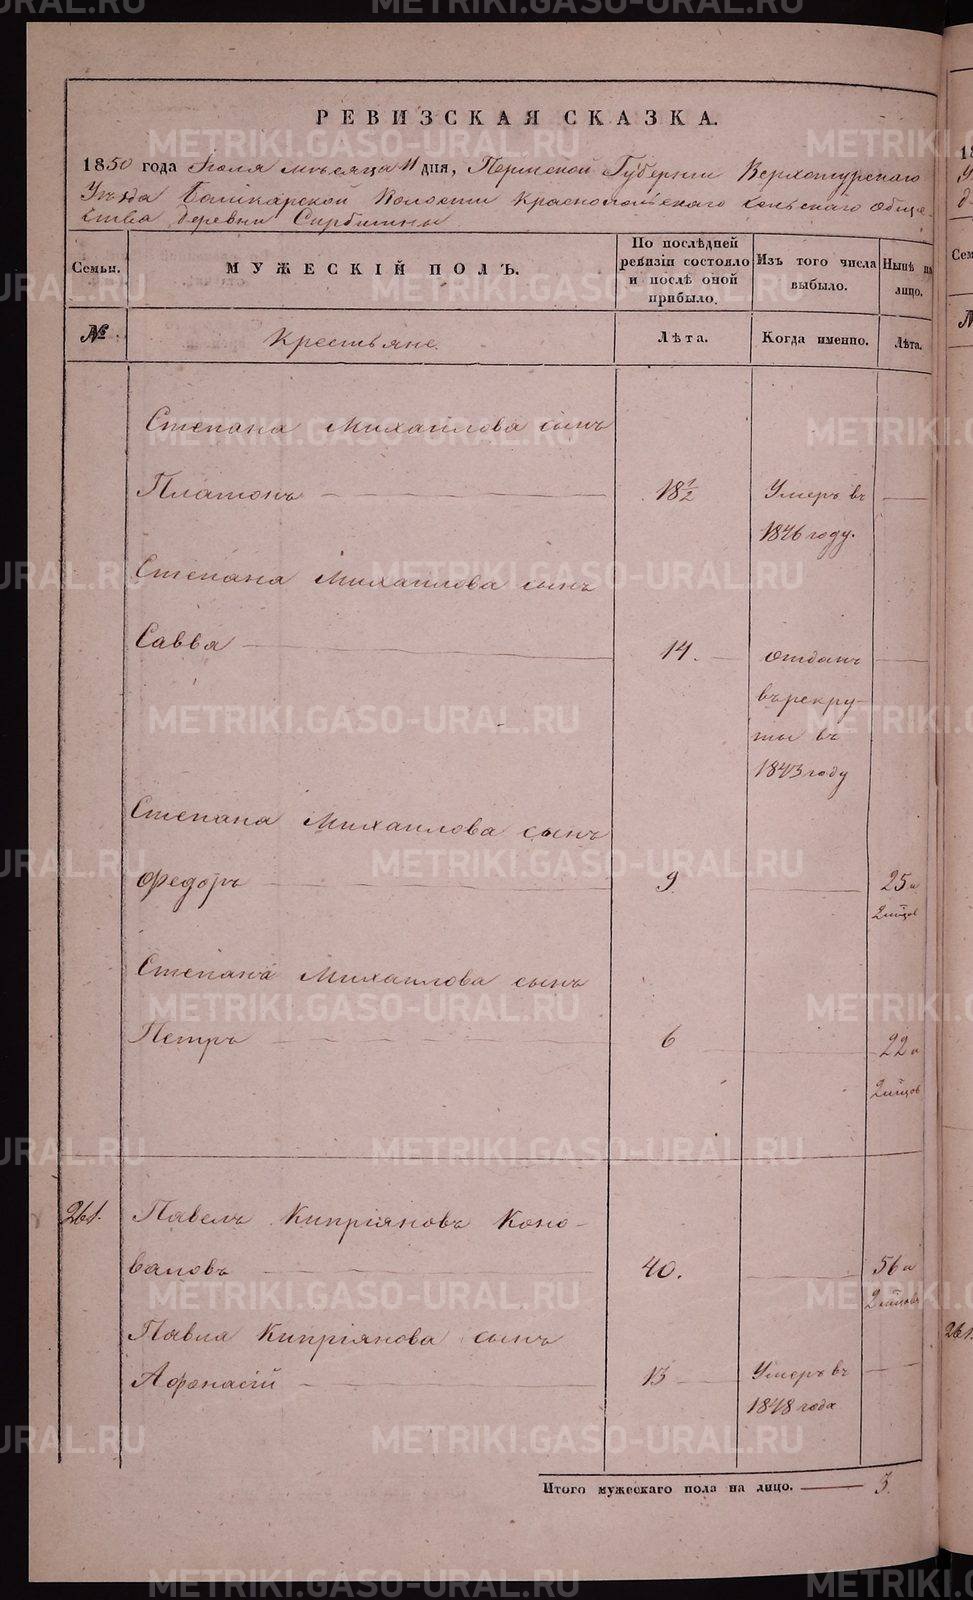 РЕВИЗСКАЯ СКАЗКА.
1850 года Іюля мѣсяца 11 дня, Пермской Губерніи Верхотурскаго
Уѣзда Башкарской Волости Краснопольскаго сельскаго обще-
ства деревни
Семьи. МУЖЕСКІЙ ПОЛЪ. По послѣдней ревизіи состояло и послѣ оной прибыло. Изъ того числа выбыло. Нынѣ на лицо.
№ Крестьяне. Лѣта. Когда именно. Лѣта.
Степана Михаилова сынъ
Платонъ 18½ Умеръ въ
1846 году.
Степана Михаилова сынъ
Савва 14. отданъ
въ рекру-
ты въ
1843 году
Степана Михаилова сынъ
Федоръ 9. 25 и
2 мѣсяцов
Степана Михаилова сынъ
Петръ 6 22 и
2 мѣсяцов
261. Павелъ Кипріяновъ Коно-
валовъ 40. 56 и
2 мѣсяцовъ
Павла Кипріянова сынъ
Афонасій 13 Умеръ въ
1848 года
Итого мужескаго пола на лицо. 3.
METRIKI.GASO-URAL.RU